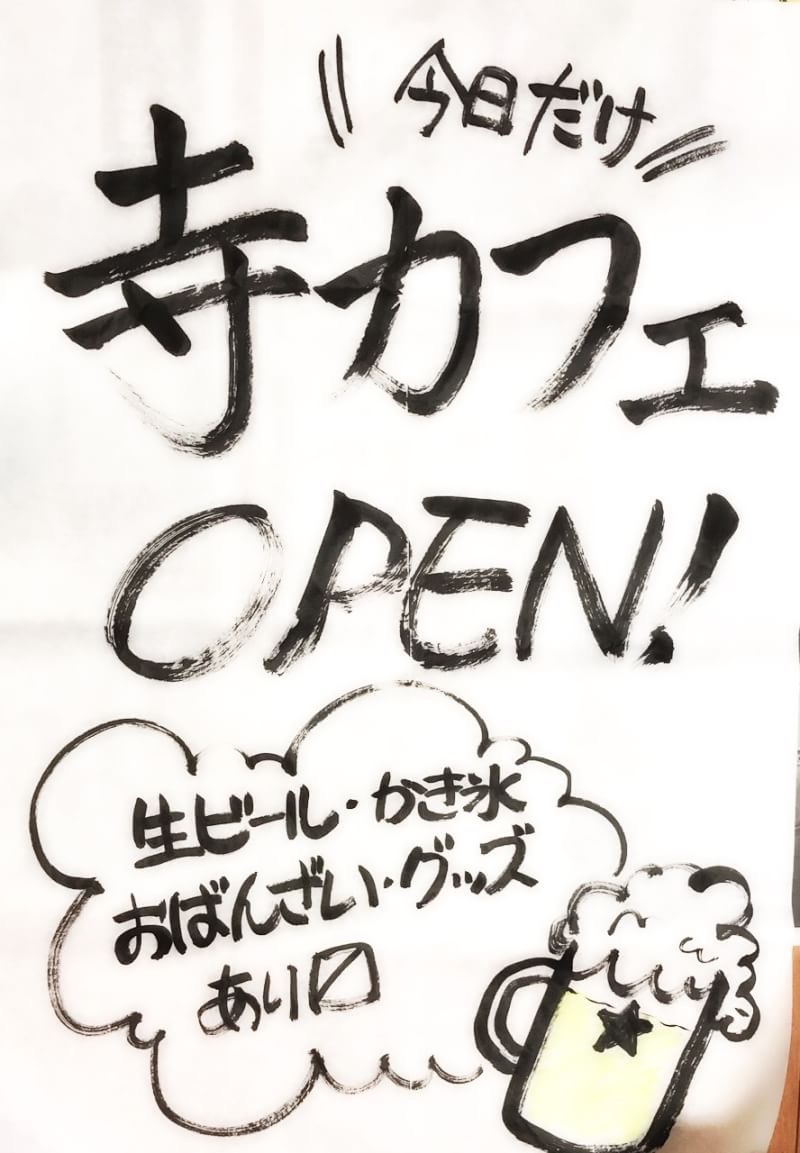 今日だけ
寺カフェ
OPEN!
生ビール・かき氷
おばんざい・グッズ
あり〼